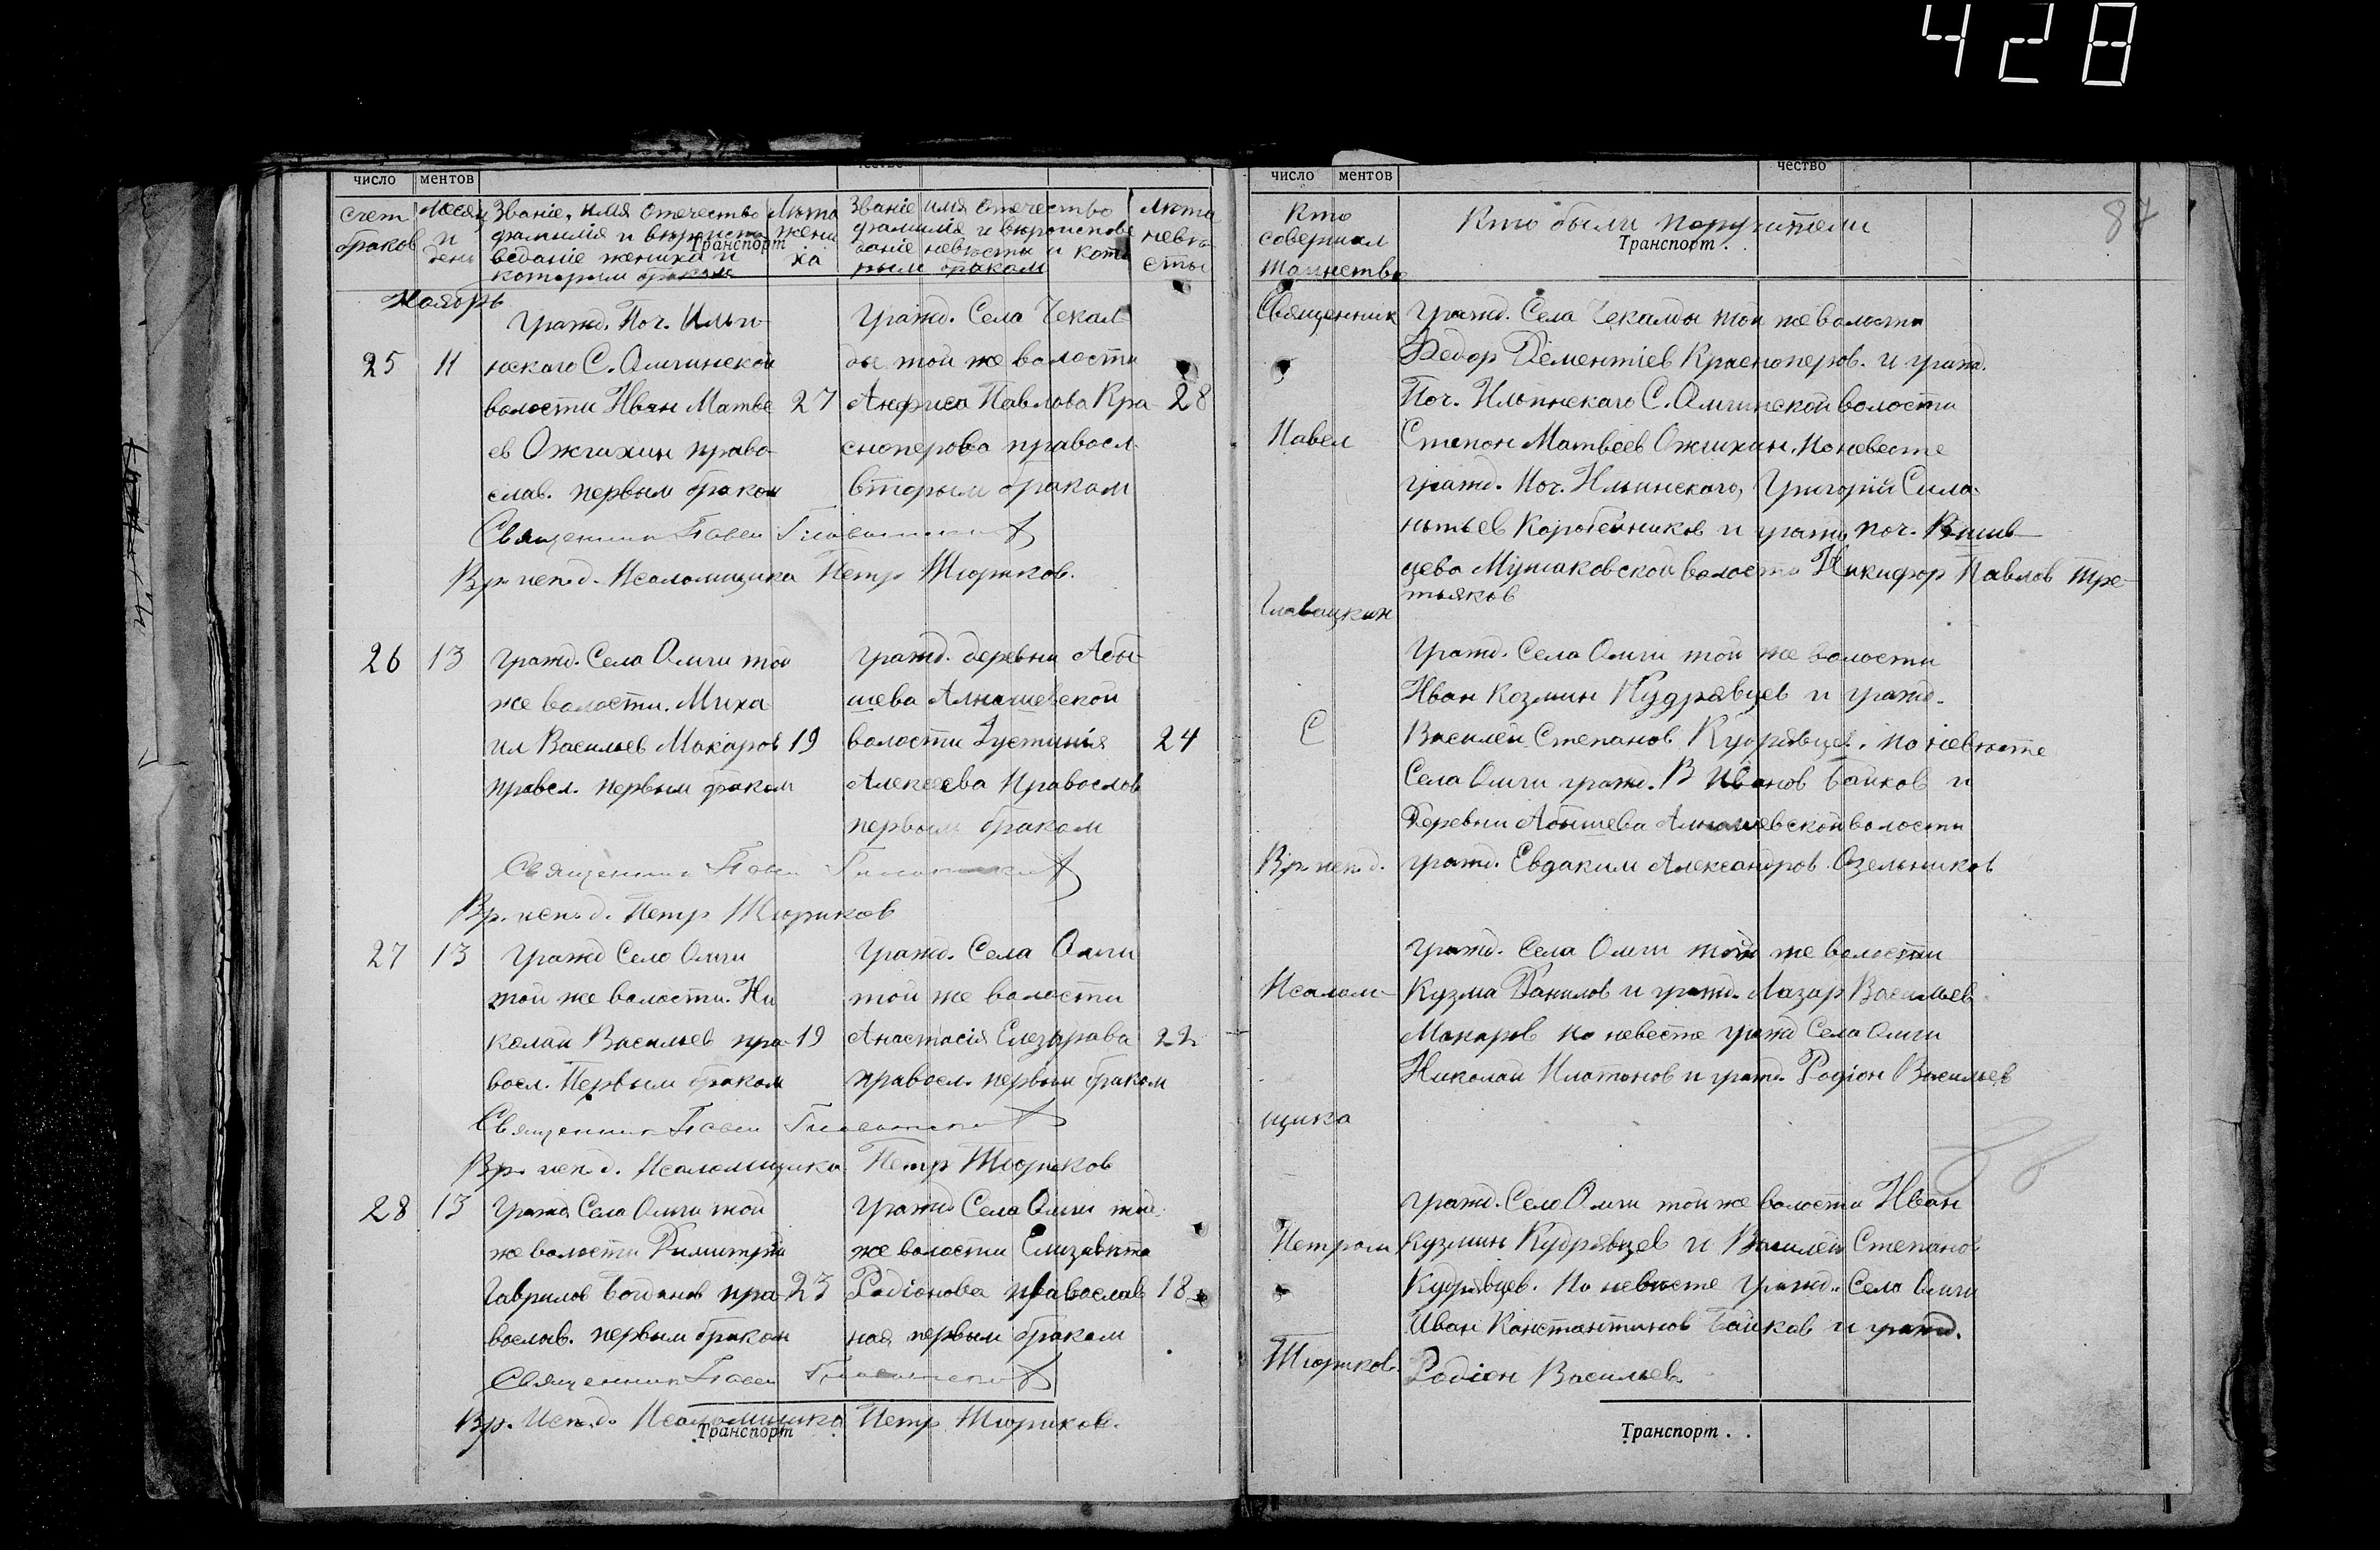 428
число ментов чество
счет браков
Месяц и день
Званіе, имя отечество фамилія и вѣроисповѣданіе жениха и которым браком
Транспорт
Лѣта жениха
Званіе имя отечество фамилія и вѣроисповѣданіе невѣсты и которым браком
Лѣта невѣсты
Ноябрь
Гражд. Поч. Ильи-
25 11 нскаго С. Омгинской
волости Иван Матве 27
ев Ожгихин право-
слав. первым браком
Гражд. Села Чекал-
ды той же волости
Анфиса Павлова Кра- 28
сноперова правосл.
вторым браком
Священник Павел
Вр. исп. д. Псаломщика Петр Тюриков.
26 13 гражд. Села Омги той
же волости. Миха
ил Васильев Макаров 19
правсл. первым браком
гражд. деревни Абы-
шева Алнашевской
волости Іустинія 24
Алексеева Православ
первым браком
Священник Павел
Вр. исп. д. Петр Тюриков
27 13 Гражд Село Омги
той же волости. Ни
колай Васильев пра- 19
восл. Первым браком
Гражд. Села Омги
той же волости
Анастасія Елезарава 22
правосл. первым браком
Священник Павел
Вр. исп. д. Псаломщика Петр Тюриков
28 13 Гражд Села Омги той
же волости Димитрій
Гаврилов Богданов пра- 23
вослав. первым браком
Гражд Села Омги той
же волости Елизавѣта
Родіонова православ 18
ная первым браком
Священник Павел
Вр. Исп. д. Псаломщика Петр Тюриков.
Транспорт
число ментов чество
Кто совершал таинство
Кто были поручители
Транспорт .
87
Священник
Павел
Главацкин
С
Вр. исп. д.
Псалом-
щика
Петром
Тюриков.
Гражд. Села Чекалды той же волости
Федор Дементіев Красноперов. и гражд.
Поч. Ильинскаго С. Омгинской волости
Степон Матвѣев Ожгихин. По невесте
гражд. Поч. Ильинскаго, Григорій Сила-
нтьев Коробейников и гражд. поч.
цева Мушаковской волости Никифор Павлов Тре-
тьяков
Гражд. Села Омги той же волости
Иван Козмин Кудрявцев и гражд.
Василей Степанов Кудрявцев. по невѣсте
Села Омги гражд. В Иванов Байков и
Деревни Абышева Алнашевской волости
гражд. Евдаким Александров Озельников
Гражд. Села Омги той же волости
Кузма Данилов и гражд. Лазар Васильев
Макаров по невесте гражд Села Омги
Николай Платонов и гражд. Родіон Васильев
гражд. Село Омги той же волости Иван
Кузмин Кудрявцев и Василей Степанов
Кудрявцев. По невѣсте Гражд. Село Омги
Иван Константинов Байков и гражд.
Родіон Васильев
Транспорт . .